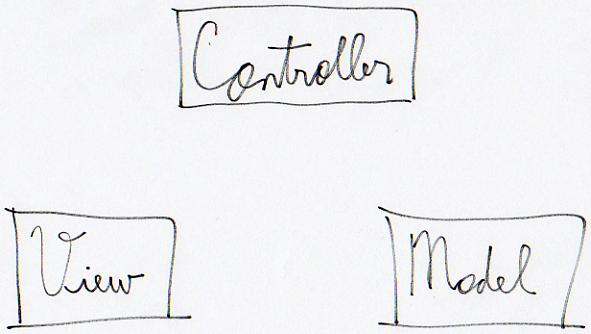 Controller
View
Model